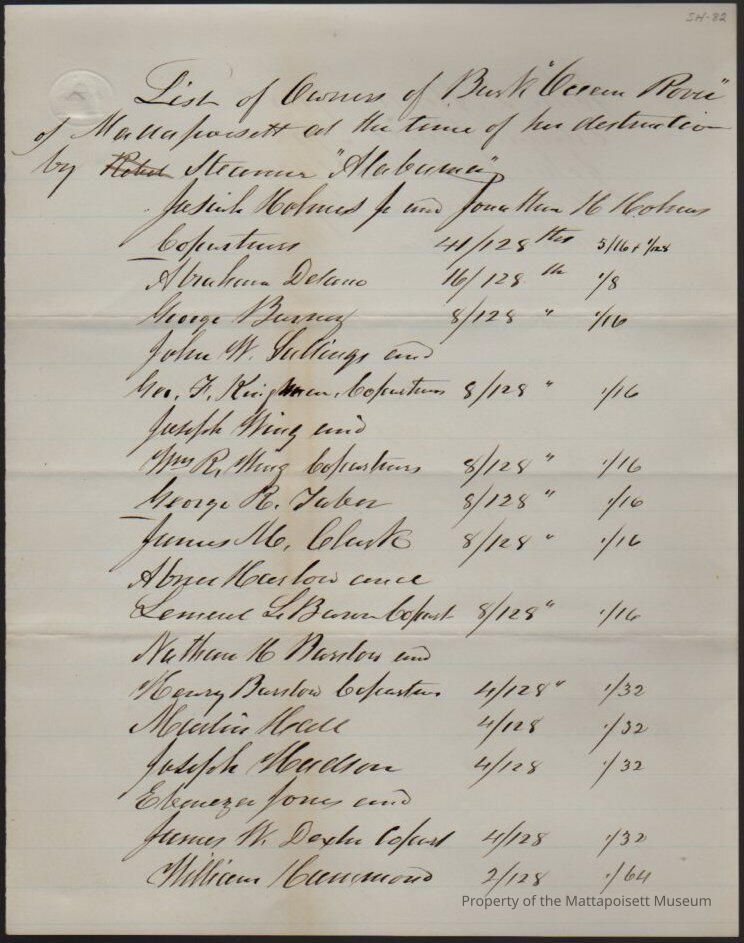 SH-82
List of Owners of Bark "Ocean Rover"
of Mattapoisett at the time of her destruction
by Rebel Steamer "Alabama"
Josiah Holmes Jr and Jonathan H Holmes
Copartners 41/128 ths 5/16 + 1/128
Abraham Delano 16/128 th 1/8
George Barney 8/128 " 1/16
John W. and
Geo. F. Kingman, Copartners 8/128 " 1/16
Joseph Wing and
Wm R. Wing Copartners 8/128 " 1/16
George R. Taber 8/128 " 1/16
James M. Clark 8/128 " 1/16
Abner Harlow and
Lemuel Copart 8/128 " 1/16
Nathan H Barstow and
Henry Barstow Copartners 4/128 " 1/32
Martin Hall 4/128 1/32
Joseph Hudson 4/128 1/32
Ebenezer Jones and
James W. Dexter Copart 4/128 1/32
William Hammond 2/128 1/64
Property of the Mattapoisett Museum